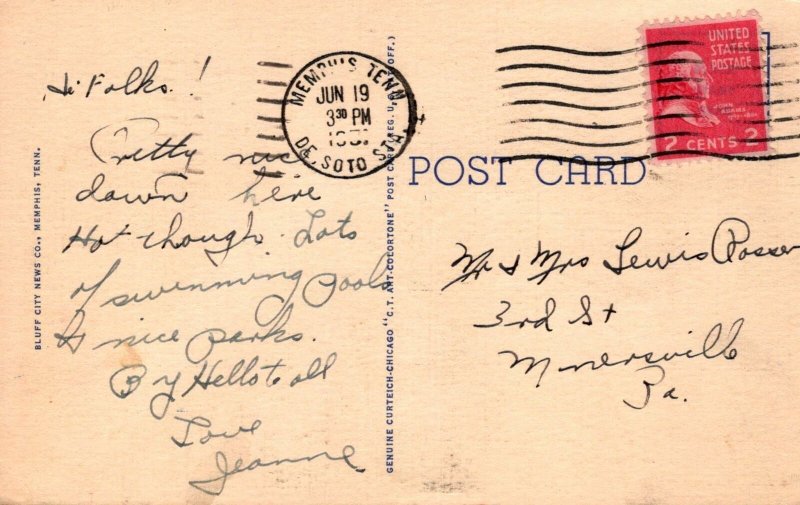 Hi Folks!
Pretty nice
down here
Hot though. Lots
of swimming pools
& nice parks.
By Hello to all
Love
Jeanne
BLUFF CITY NEWS CO., MEMPHIS, TENN.
MEMPHIS TENN.
JUN 19
3 30 PM
DE SOTO STA.
GENUINE CURTEICH-CHICAGO "C.T. ART-COLORTONE" POST CARD (REG. U. OFF.)
POST CARD
UNITED
STATES
POSTAGE
JOHN
ADAMS
2 CENTS 2
Mr & Mrs Lewis Rosser
3rd St
Minersville
Pa.